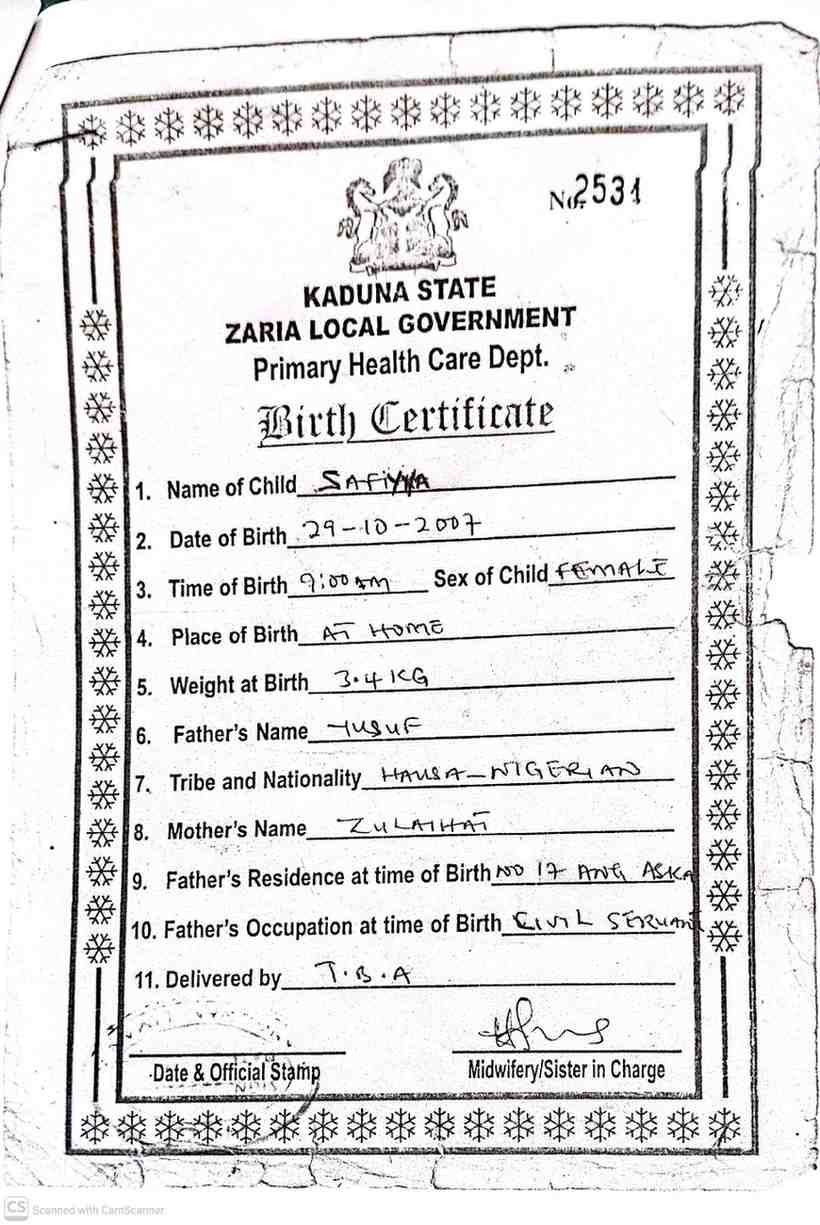 No. 2531
KADUNA STATE
ZARIA LOCAL GOVERNMENT
Primary Health Care Dept.
Birth Certificate
1. Name of Child SAFIYYA
2. Date of Birth 29-10-2007
3. Time of Birth 9:00AM Sex of Child FEMALE
4. Place of Birth AT HOME
5. Weight at Birth 3.4KG
6. Father's Name YUSUF
7. Tribe and Nationality HAUSA-NIGERIAN
8. Mother's Name ZULAIHAT
9. Father's Residence at time of Birth NO 17 ANG ASKA
10. Father's Occupation at time of Birth CIVIL SERVANT
11. Delivered by T.B.A
Date & Official Stamp
Midwifery/Sister in Charge
CS Scanned with CamScanner